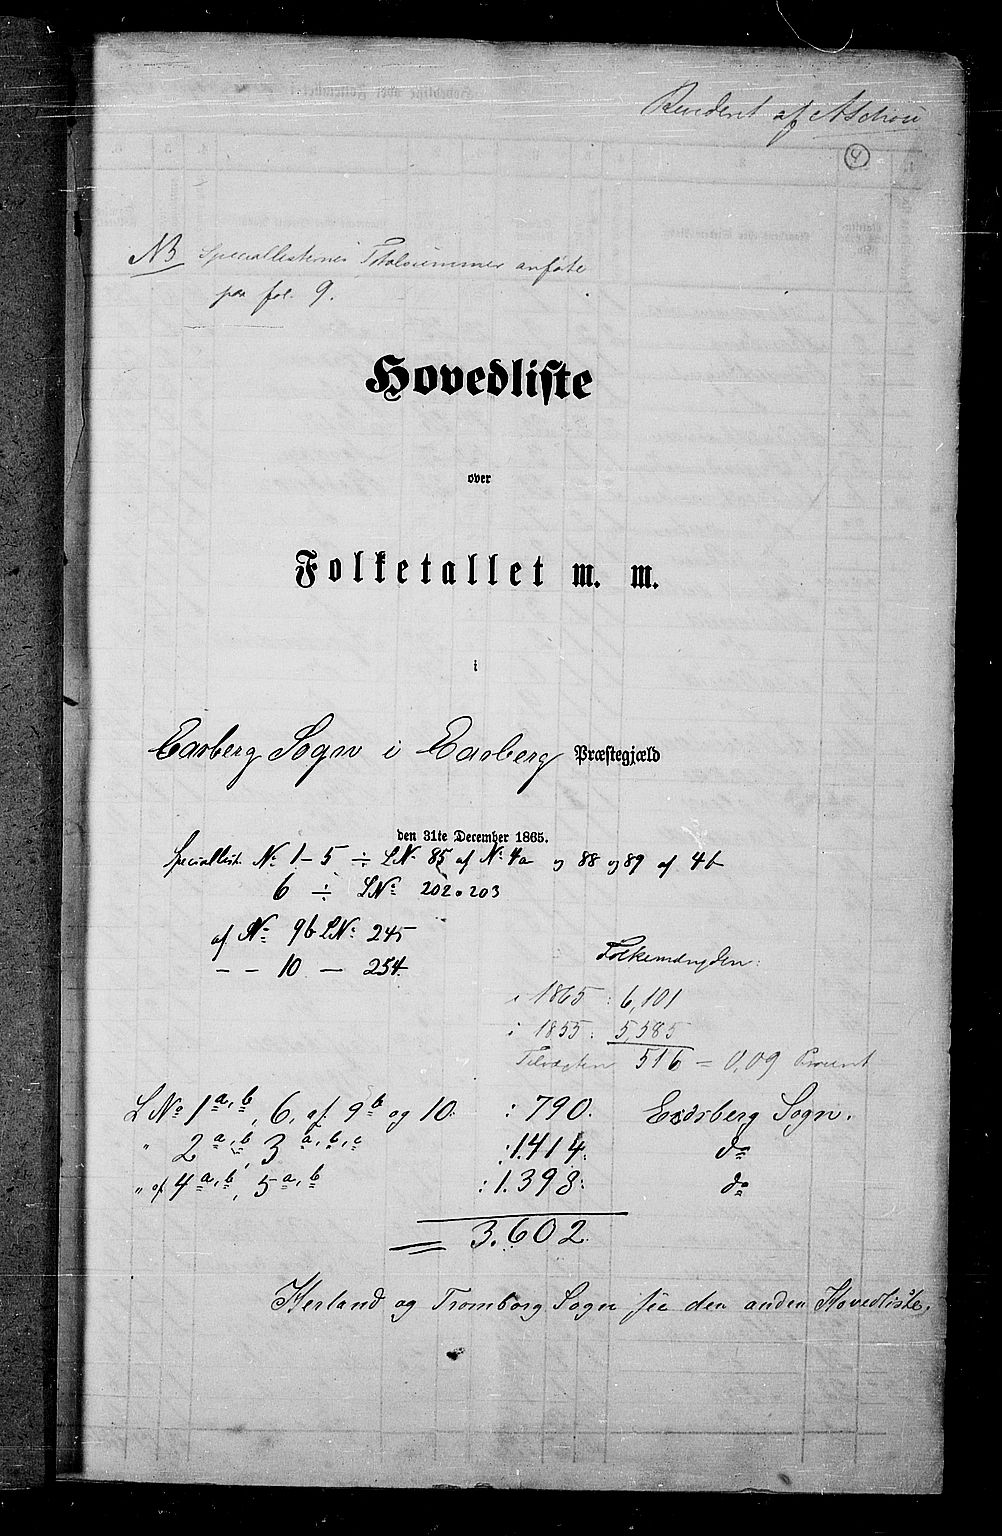 Revideret af ASchou
4
NB Speciallisternes Totalsummer anførte
paa fol. 9.
Hovedliste
over
Folketallet m. m.
i
Eidsberg Sogn i Eidsberg Præstegjæld
den 31te December 1865.
Speciallist. No 1-5 ÷ LNo 85 af No 4a og 88 og 89 af 4b
6 ÷ LNo 202 o 203
af No 9b LNo 245
— — 10 — 254.
Folkemængden:
i 1865 : 6,101
i 1855 : 5,585
Tilvæxten 516 = 0,09 Procent
LNo 1 a,b, 6, af 9b og 10. : 790. Eidsberg Sogn.
" 2 a,b, 3 a,b,c : 1.414. do
" af 4 a,b, 5 a,b : 1.398: do
= 3.602
Herland og Tromborg Sogn see den anden Hovedliste.